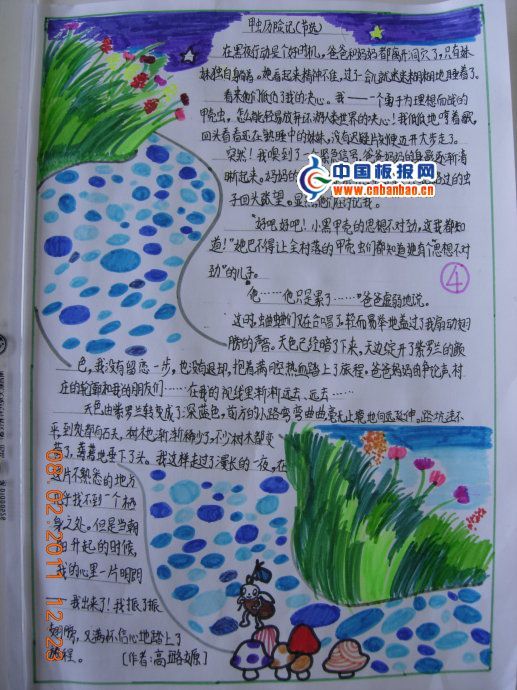 甲虫历险记(节选)
在黑夜行动是个好时机,爸爸和妈妈都离开洞穴了,只有妹
妹独自躺着。她看起来精神不佳,过了一会儿就迷迷糊糊地睡着了。
看来他们低估了我的决心。我——一个勇于为理想而战的
甲壳虫,怎么能轻易放弃环游人类世界的决心!我低低地哼着歌,
回头看看还在熟睡中的妹妹,没有迟疑片刻便迈开大步走了。
突然!我嗅到了
爸爸妈妈的身影逐渐清
晰起来。妈妈的
过的虫
子回去
中国板报网
www.cnbanbao.cn
“好吧好吧!小黑甲壳的思想不对劲,这我都知
道!”她巴不得让全村落的甲壳虫们都知道她有个“思想不对
劲”的儿子。
“他……他只是累了……”爸爸虚弱地说。
④
这时,蛐蛐们又在合唱了,轻而易举地盖过了我扇动翅
膀的声音。天色已经暗了下来,天边绽开了紫罗兰的颜
色,我没有留恋一步,也没有退却,抱着满腔热血踏上了旅程。爸爸妈妈的争论声、村
庄的轮廓和我的朋友们……在我的视线里渐渐远去、远去……
天色由紫罗兰转变成了深蓝色,前方的小路弯弯曲曲毫无止境地向远延伸。路坑洼不
平,到处都有石头,树木也渐渐稀少了,不少树木都变
蔫了,蔫蔫地垂下了头。我这样走过了漫长的一夜,在
这片不熟悉的地方
似乎找不到一个栖
身之处。但是当朝
阳升起的时候,
我的心里一片明朗
——我出来了!我振了振
翅膀,又满怀信心地踏上了
旅程。
08.02.2011 12:23